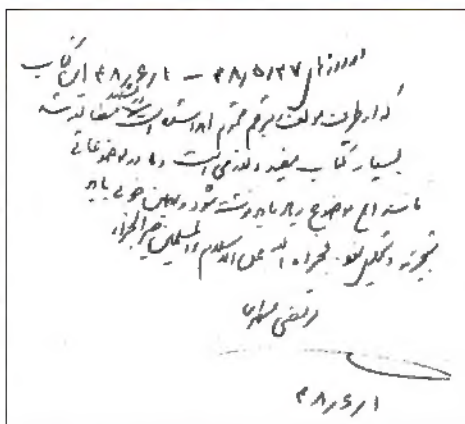 در روزهای ۴۸/۵/۲۷ – ۴۸/۶/۱ این کتاب
که از طرف مؤلف محترم اهداء شده است مطالعه شد
بسیار کتاب مفید و لازمی است و ما در موضوعاتی
مانند این موضوع زیاد باید نوشته شود و به این خوبی باید
تجزیه و تحلیل شود. فجزاه الله عن الاسلام والمسلمین خیر الجزاء
مرتضی مطهری
۴۸/۶/۱